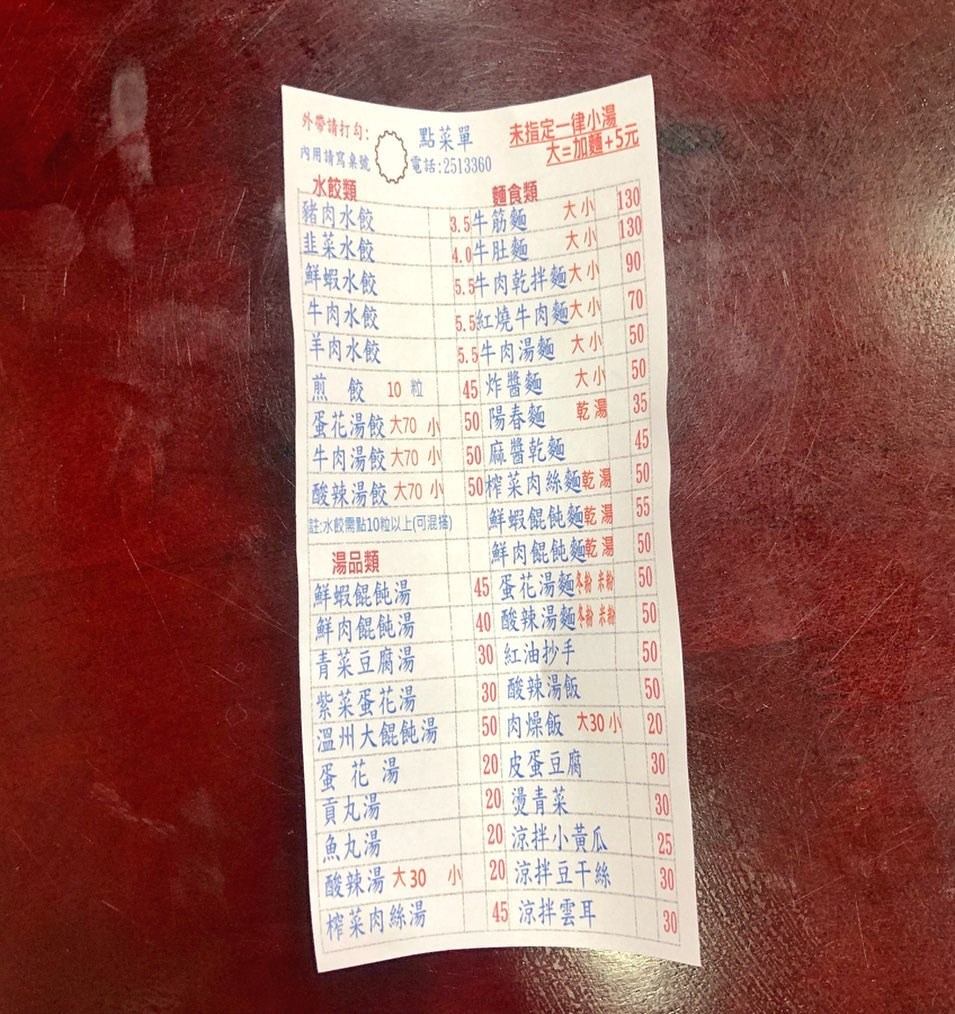 外帶請打勾:
內用請寫桌號
點菜單
電話:2513360
未指定一律小湯
大=加麵+5元
水餃類
豬肉水餃 3.5
韭菜水餃 4.0
鮮蝦水餃 5.5
牛肉水餃 5.5
羊肉水餃 5.5
煎 餃 10 粒 45
蛋花湯餃 大70 小 50
牛肉湯餃 大70 小 50
酸辣湯餃 大70 小 50
註:水餃需點10粒以上(可混搭)
湯品類
鮮蝦餛飩湯 45
鮮肉餛飩湯 40
青菜豆腐湯 30
紫菜蛋花湯 30
溫州大餛飩湯 50
蛋 花 湯 20
貢丸湯 20
魚丸湯 20
酸辣湯 大30 小 20
榨菜肉絲湯 45
麵食類
牛筋麵 大 小 130
牛肚麵 大 小 130
牛肉乾拌麵 大 小 90
紅燒牛肉麵 大 小 70
牛肉湯麵 大 小 50
炸醬麵 大 小 50
陽春麵 乾 湯 35
麻醬乾麵 45
榨菜肉絲麵 乾 湯 50
鮮蝦餛飩麵 乾 湯 55
鮮肉餛飩麵 乾 湯 50
蛋花湯麵 冬粉 米粉 50
酸辣湯麵 冬粉 米粉 50
紅油抄手 50
酸辣湯飯 50
肉燥飯 大30 小 20
皮蛋豆腐 30
燙青菜 30
涼拌小黃瓜 25
涼拌豆干絲 30
涼拌雲耳 30